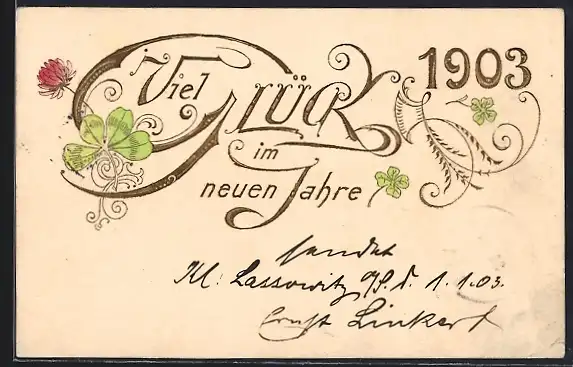 Viel
Glück
im
neuen Jahre
1903
sendet
Kl. Lassowitz O/S. d. 1.1.03.
Ernst Linkert